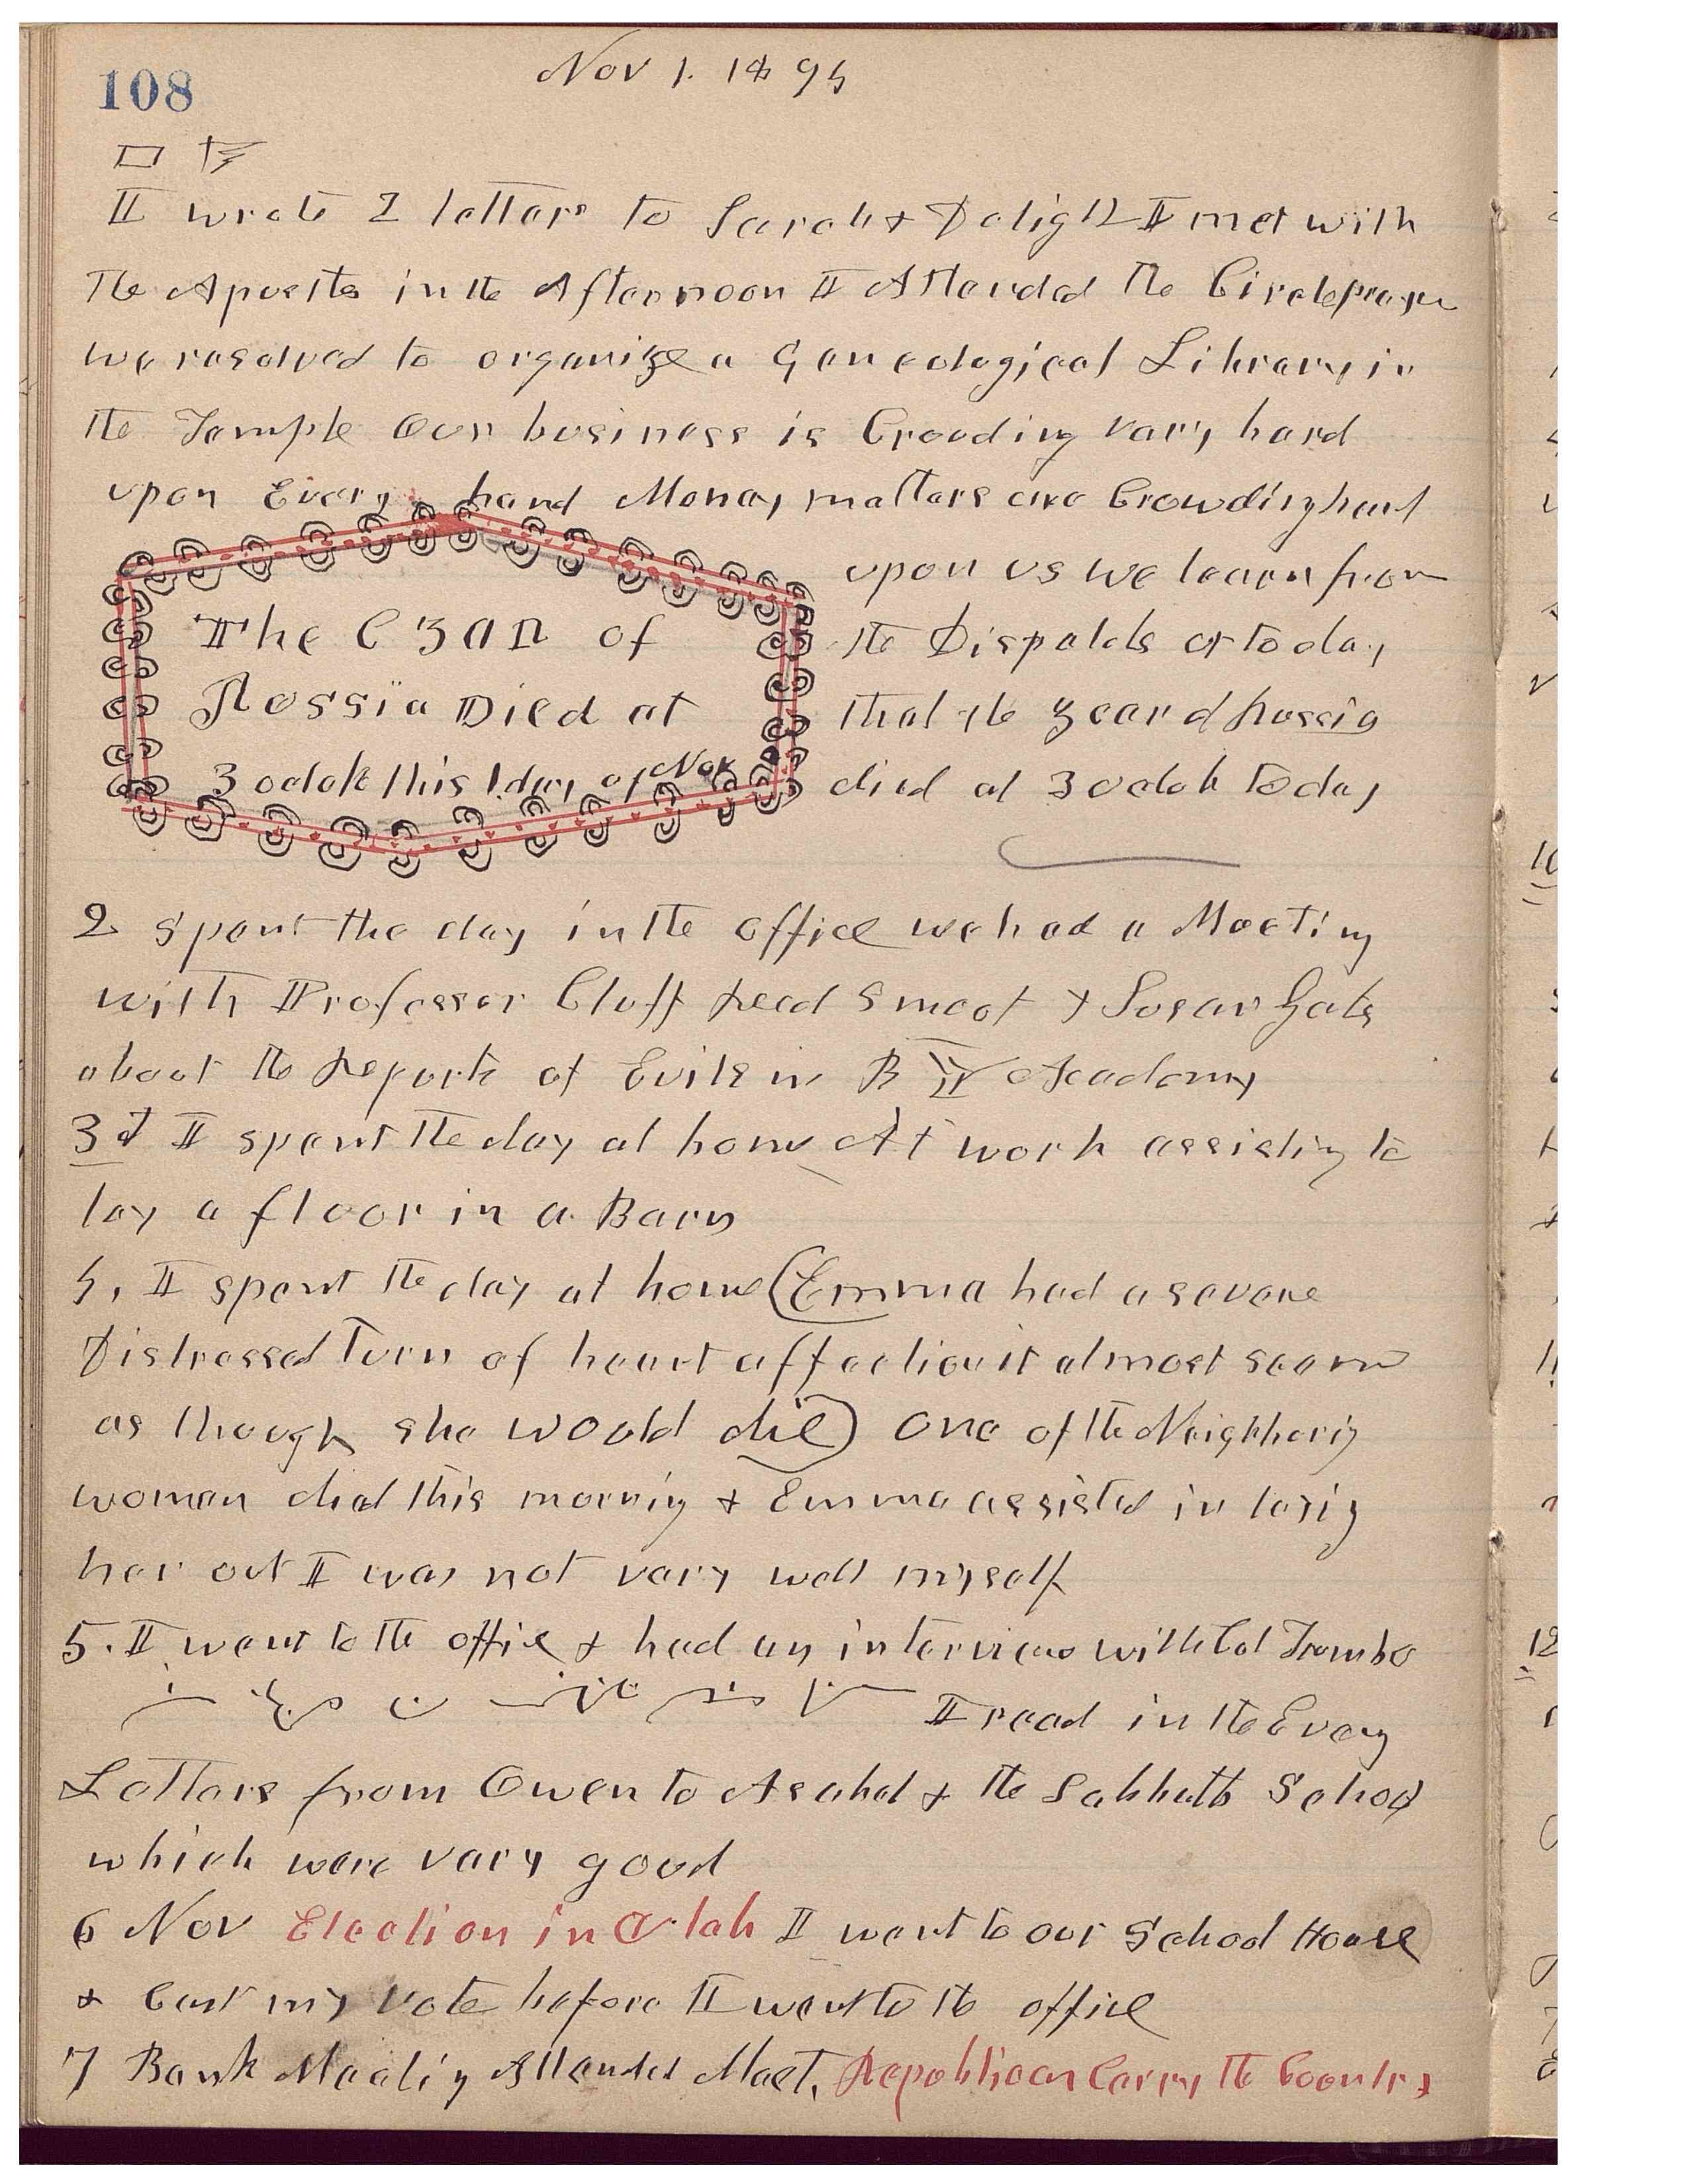 108
Nov 1. 1894
I wrote 2 letters to Sarah & Delight I met with
The Apostles in the Afternoon I Attended the Circle prayer
we resolved to organize a Geneological Library in
the Temple Our business is Crouding vary hard
upon Every hand Money matters are Crowding hard
upon us we learn from
The CZAR of
the Dispatch of to day
Russia Died at
that the Zear of Russia
3 oclok this 1 day of Nov
died at 3 oclok to day
2 Spent the day in the office we had a Meeting
with Professor Cluff Reed Smoot & Susan Gates
about the Reports of Evils in B Y Academy
3d I spent the day at home At work assisting to
lay a floor in a Barn
4, I spent the day at home (Emma had a severe
Distressed Turn of heart affection it almost seem
as though she would die) One of the Neighboring
women died this morning & Emma assisted in laying
her out I was not vary well myself
5. I went to the office & had an interview with Col Trumbo
I read in the Eveng
Letters from Owen to Asahel & the Sabbath School
which were vary good
6 Nov Election in Utah I went to our School House
& Cast my vote before I went to the office
7 Bank Meeting Attended Meet, Republican Carry the Country